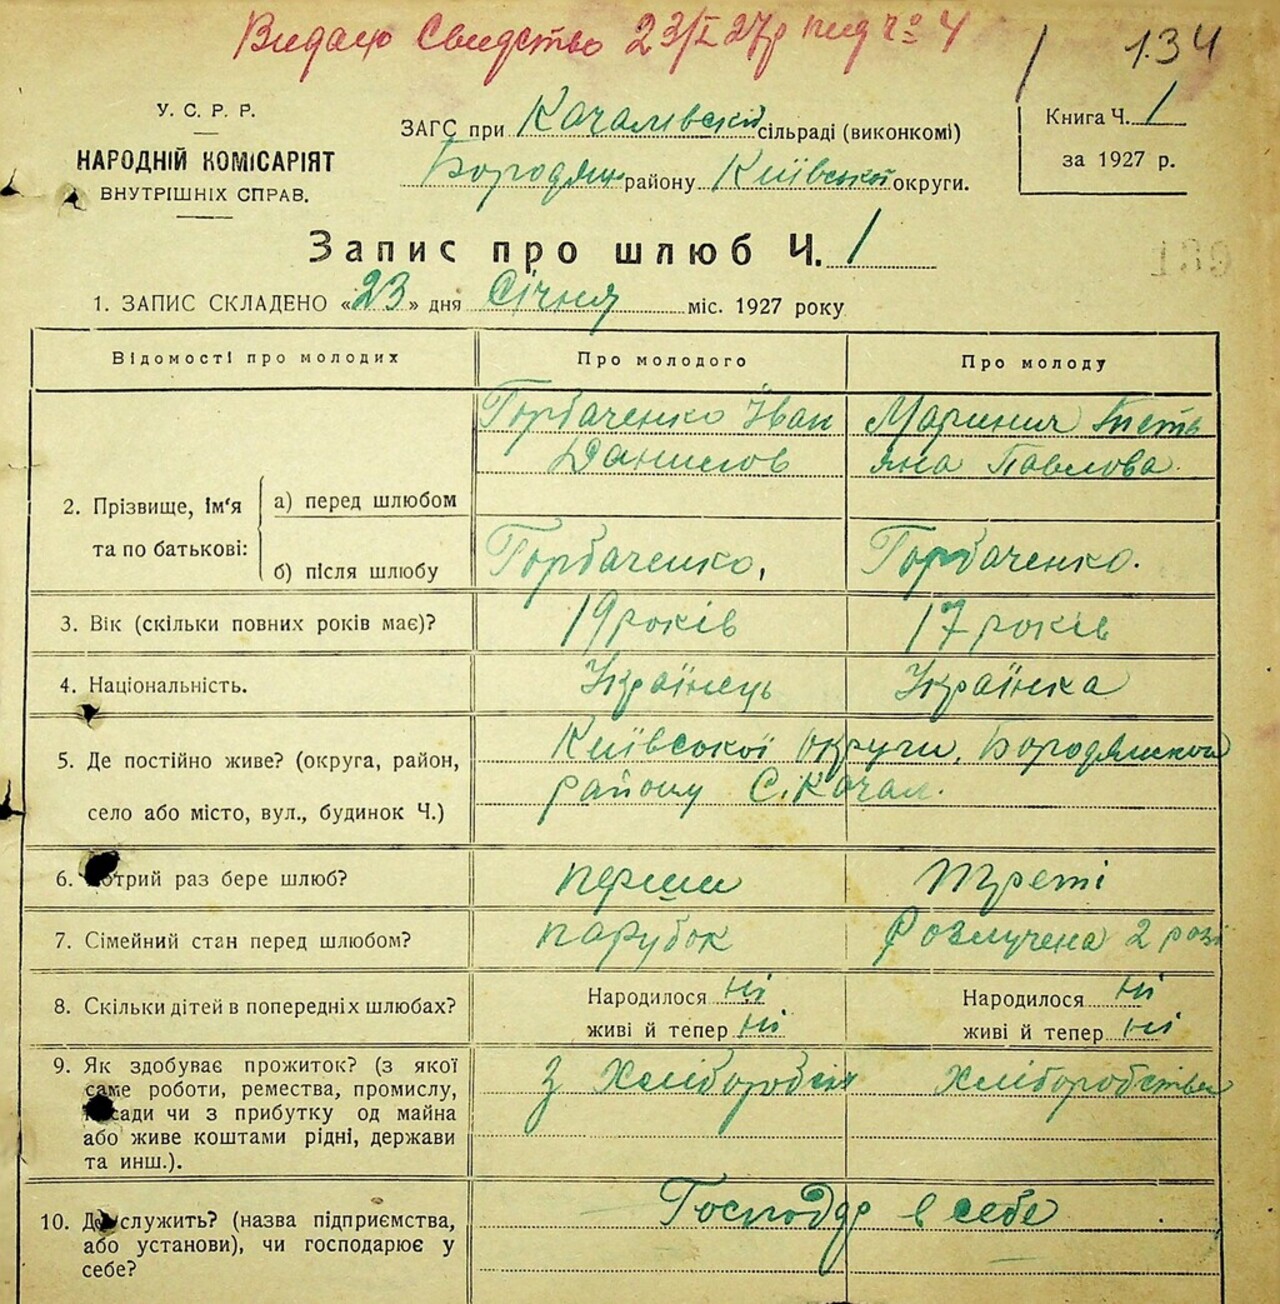 Видано Свидєтво 23/I 27р під №4
134
У. С. Р. Р.
НАРОДНІЙ КОМІСАРІЯТ
ВНУТРІШНІХ СПРАВ.
ЗАГС при Качалівскій сільраді (виконкомі)
Бородян району Київської округи.
Книга Ч. 1
за 1927 р.
Запис про шлюб Ч. 1
1. ЗАПИС СКЛАДЕНО «23» дня Січня міс. 1927 року
Відомості про молодих Про молодого Про молоду
2. Прізвище, ім'я та по батькові:
а) перед шлюбом
Горбаченко Іван
Данилов
Тетьяна Павлова.
б) після шлюбу
Горбаченко, Горбаченко.
3. Вік (скільки повних років має)? 19 років 17 років
4. Національність. Українець Українка
5. Де постійно живе? (округа, район,
село або місто, вул., будинок Ч.)
Київської округи, Бородянской
району С. Качал.
6. Котрий раз бере шлюб? перший Треті
7. Сімейний стан перед шлюбом? парубок Розлучена 2 рази
8. Скільки дітей в попередніх шлюбах? Народилося ні Народилося ні
живі й тепер ні живі й тепер ні
9. Як здобуває прожиток? (з якої
саме роботи, ремества, промислу,
посади чи з прибутку од майна
або живе коштами рідні, держави
та инш.).
з Хліборобств Хліборобства
10. Де служить? (назва підприємства,
або установи), чи господарює у
себе?
Господар в себе